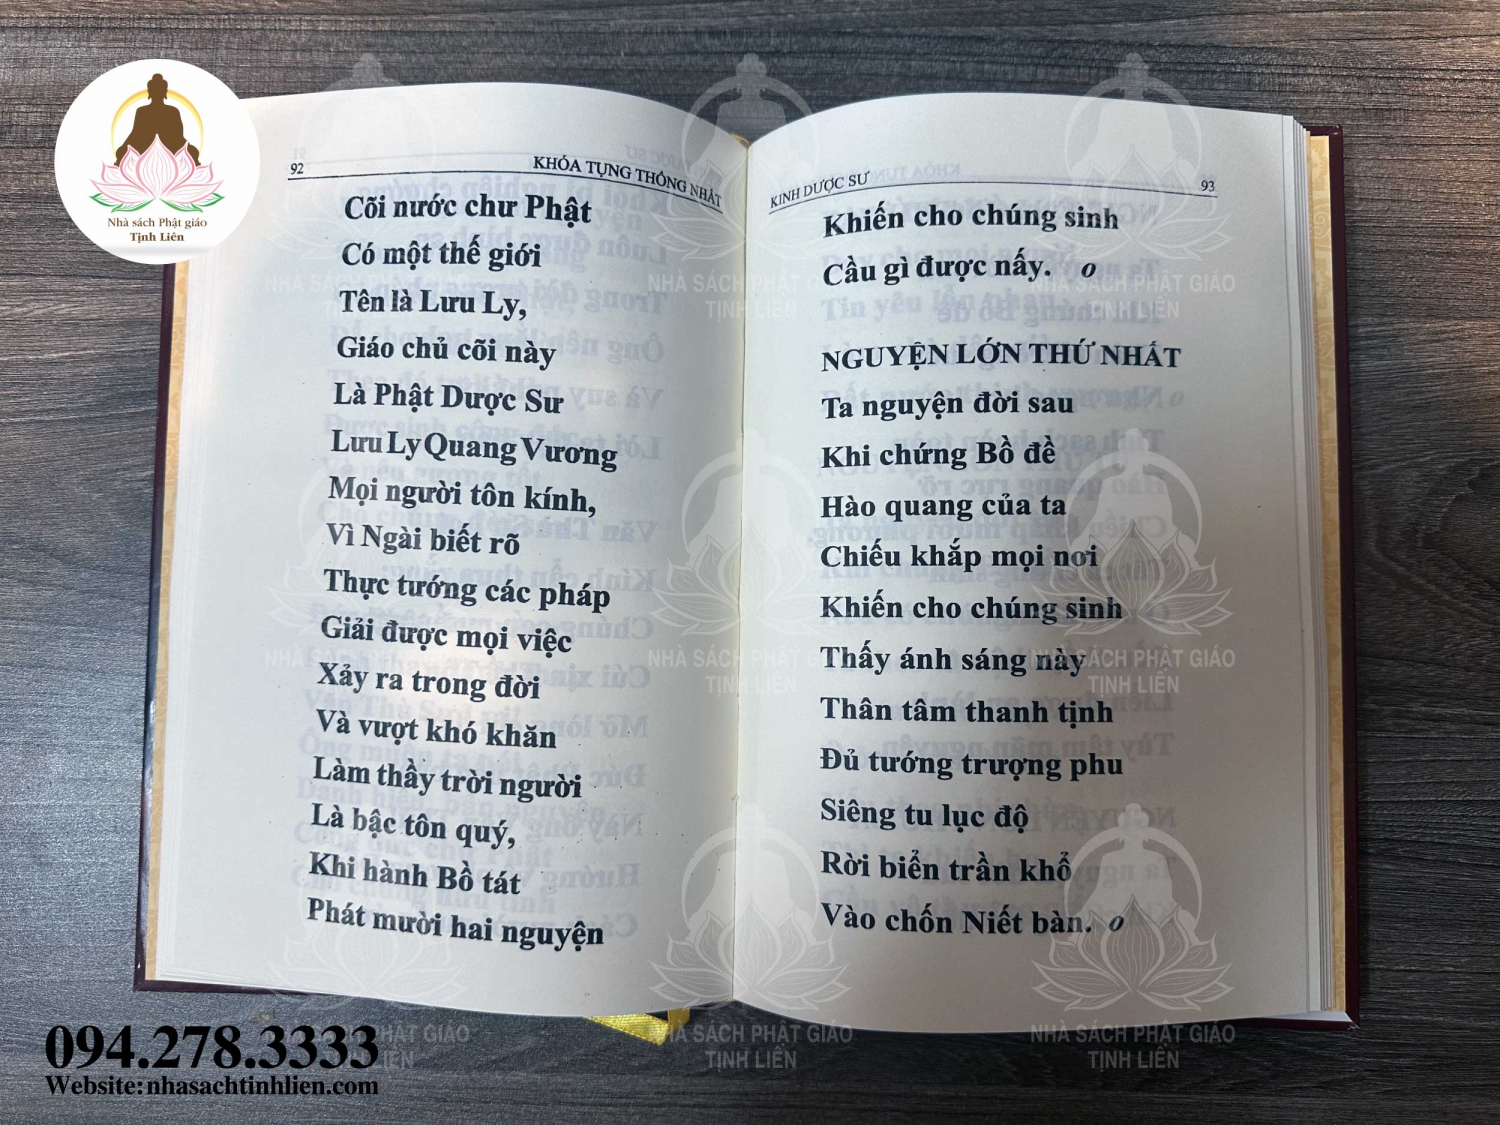 Nhà sách Phật giáo
Tịnh Liên
92
KHÓA TỤNG THỐNG NHẤT
Cõi nước chư Phật
Có một thế giới
Tên là Lưu Ly,
Giáo chủ cõi này
Là Phật Dược Sư
Lưu Ly Quang Vương
Mọi người tôn kính,
Vì Ngài biết rõ
Thực tướng các pháp
Giải được mọi việc
Xảy ra trong đời
Và vượt khó khăn
Làm thầy trời người
Là bậc tôn quý,
Khi hành Bồ tát
Phát mười hai nguyện
KINH DƯỢC SƯ
93
Khiến cho chúng sinh
Cầu gì được nấy. o
NGUYỆN LỚN THỨ NHẤT
Ta nguyện đời sau
Khi chứng Bồ đề
Hào quang của ta
Chiếu khắp mọi nơi
Khiến cho chúng sinh
Thấy ánh sáng này
Thân tâm thanh tịnh
Đủ tướng trượng phu
Siêng tu lục độ
Rời biển trần khổ
Vào chốn Niết bàn. o
NHÀ SÁCH PHẬT GIÁO
TỊNH LIÊN
094.278.3333
Website: nhasachtinhlien.com